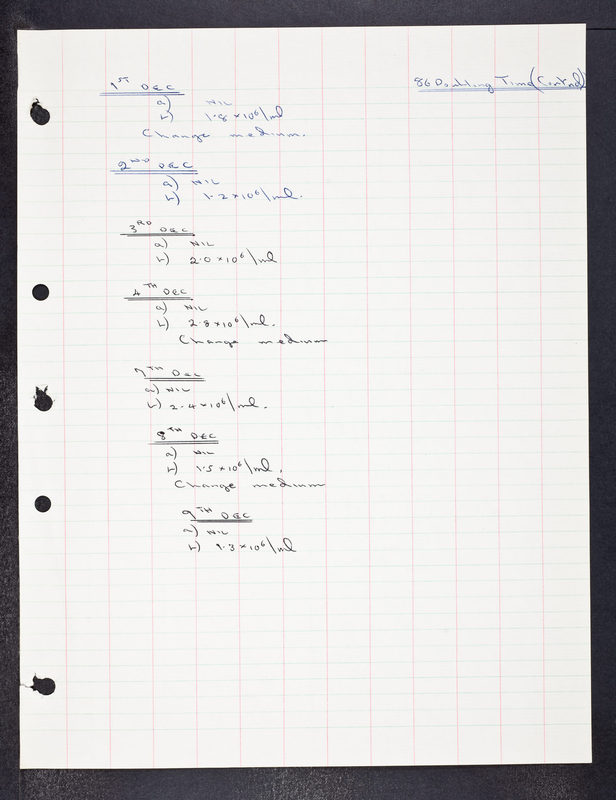 86 Doubling Time (Contnd)
1ST DEC
a) NIL
b) 1.8 × 10⁶/ml
Change medium.
2ND DEC
a) NIL
b) 1.2 × 10⁶/ml.
3RD DEC
a) NIL
b) 2.0 × 10⁶/ml
4TH DEC
a) NIL
b) 2.8 × 10⁶/ml.
Change medium
7TH DEC
a) NIL
b) 2.4 × 10⁶/ml.
8TH DEC
a) NIL
b) 1.5 × 10⁶/ml.
Change medium
9TH DEC
a) NIL
b) 1.3 × 10⁶/ml